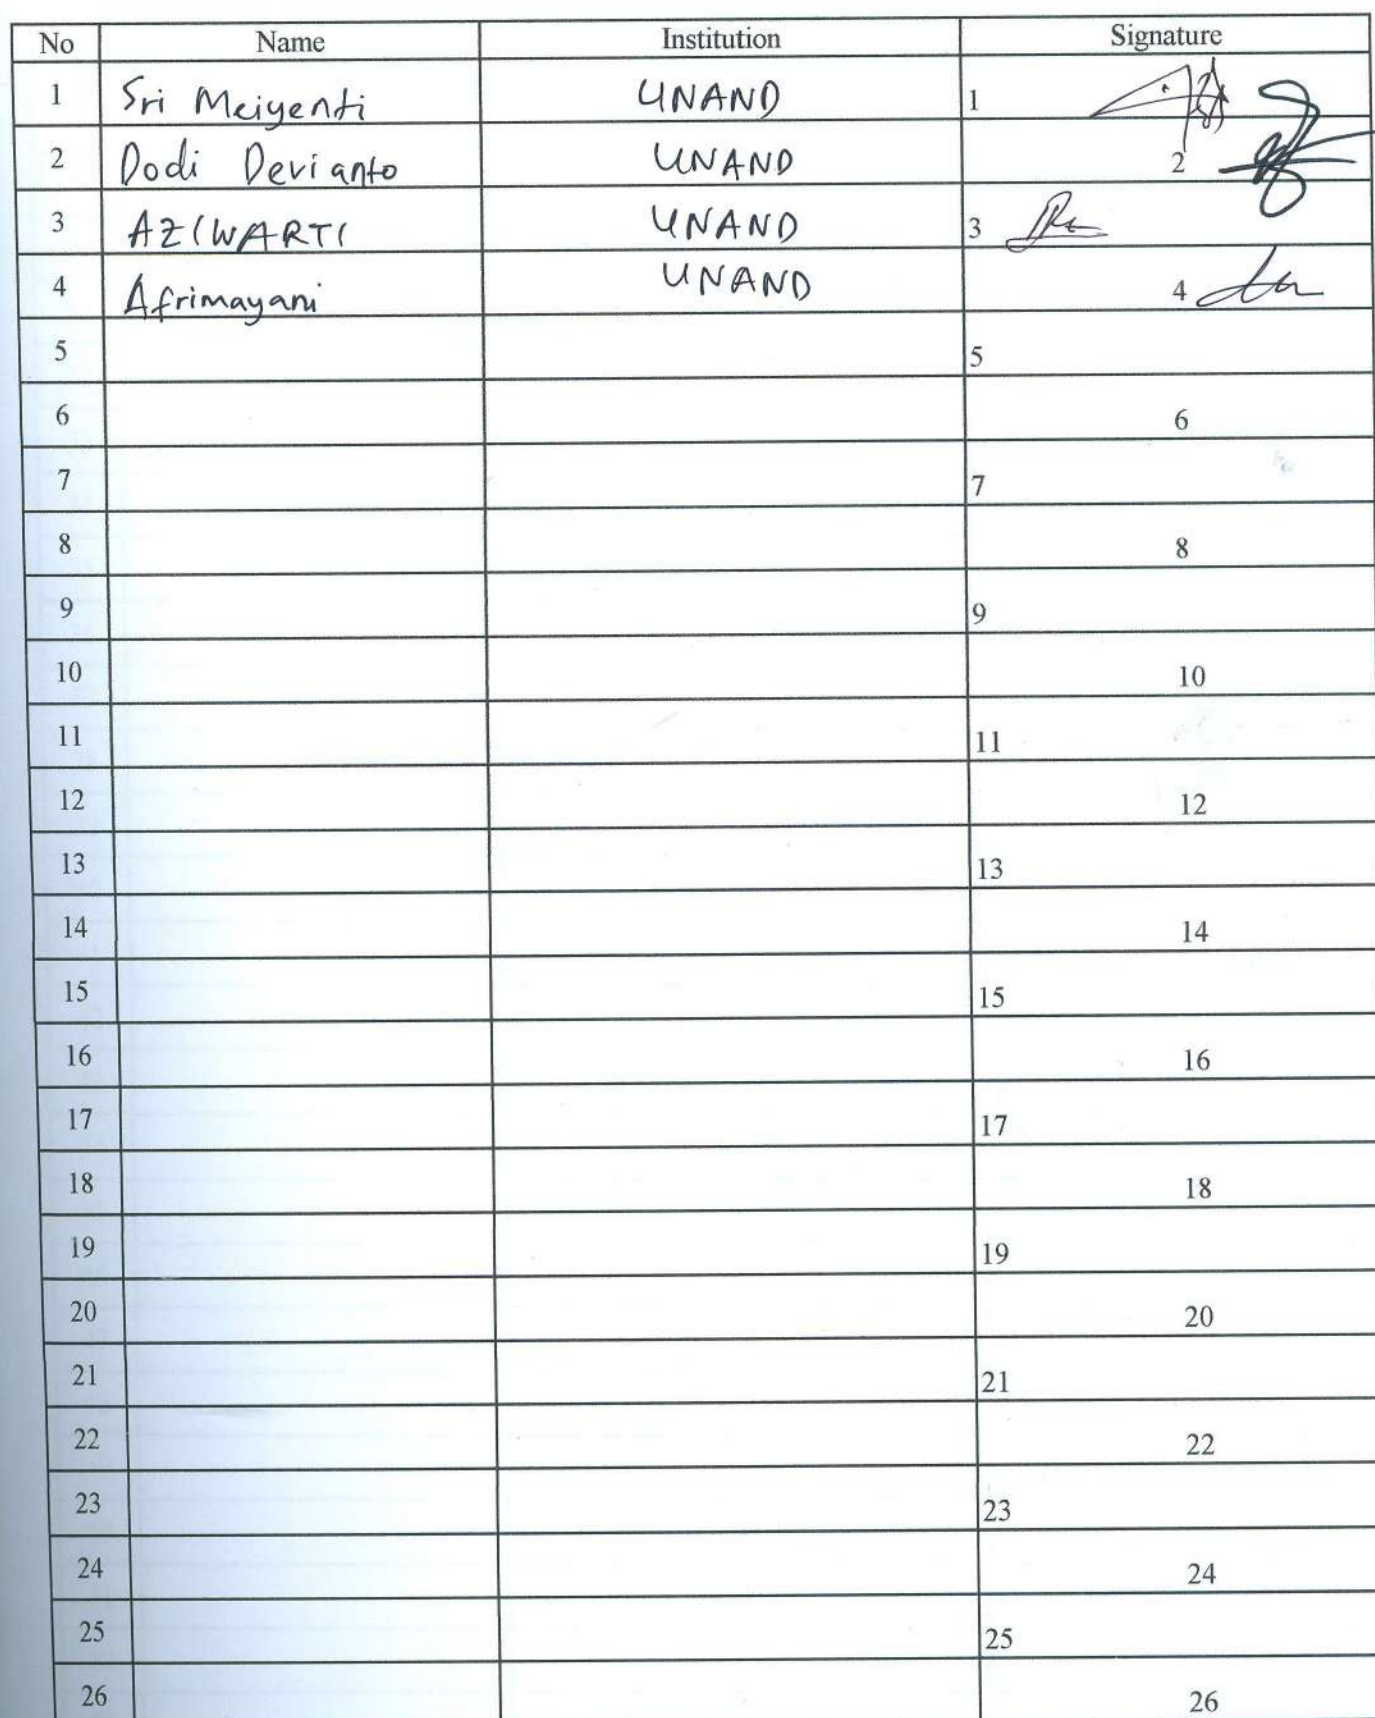 No Name Institution Signature
1 Sri Meiyenti UNAND 1
2 Dodi Devianto UNAND 2
3 AZIWARTI UNAND 3
4 Afrimayani UNAND 4
5 5
6 6
7 7
8 8
9 9
10 10
11 11
12 12
13 13
14 14
15 15
16 16
17 17
18 18
19 19
20 20
21 21
22 22
23 23
24 24
25 25
26 26